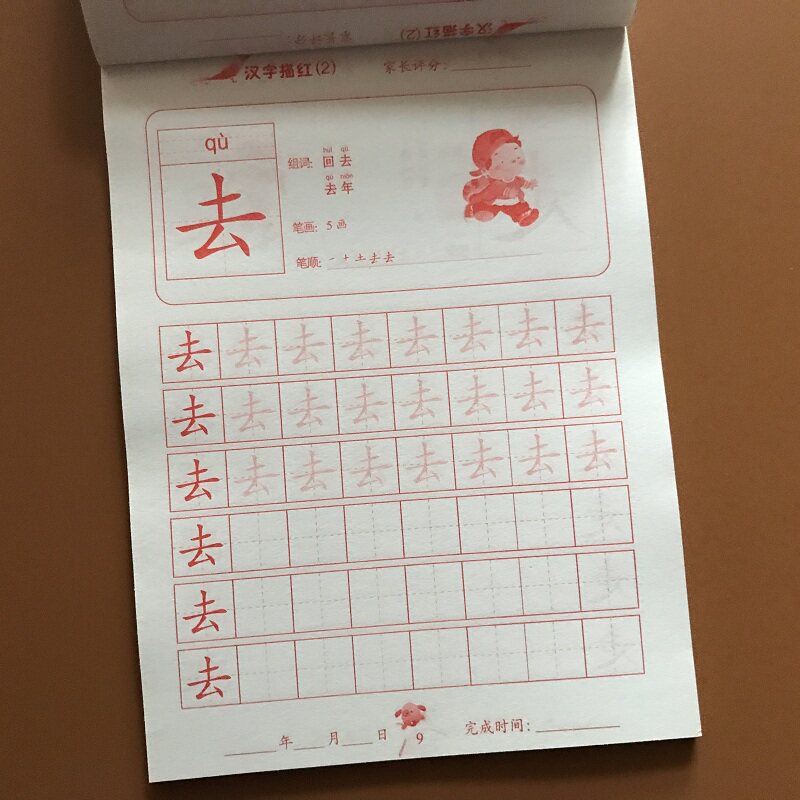 汉字描红(2) 家长评分:
qù
去
组词: 回去
huí qù
去年
qù nián
笔画: 5画
笔顺: 一 十 土 去 去
去 去 去 去 去 去 去 去
去 去 去 去 去 去 去 去
去 去 去 去 去 去 去 去
去
去
去
年 月 日 9 完成时间: